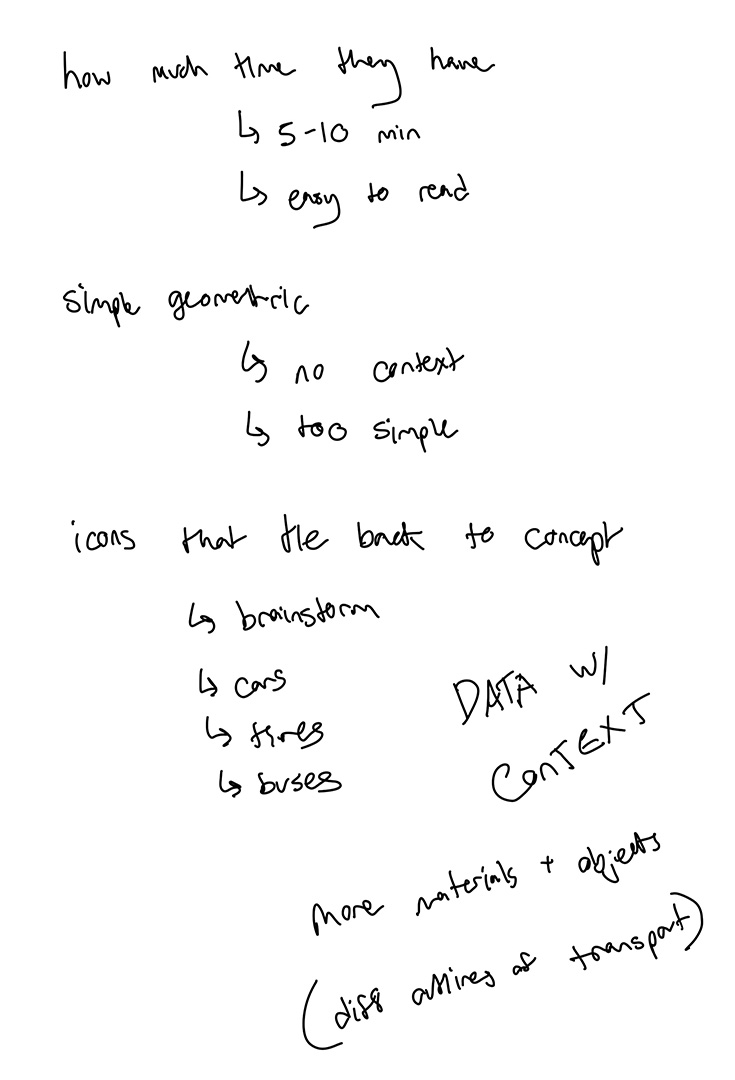 how much time they have
↳ 5-10 min
↳ easy to read
simple geometric
↳ no context
↳ too simple
icons that tie back to concept
↳ brainstorm
↳ cars
↳ tires
↳ buses
DATA w/
ConTEXT
more materials + objects
(diff of transport)